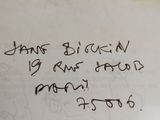 JANE BIRKIN
19 RUE JACOB
PARIS
75006.